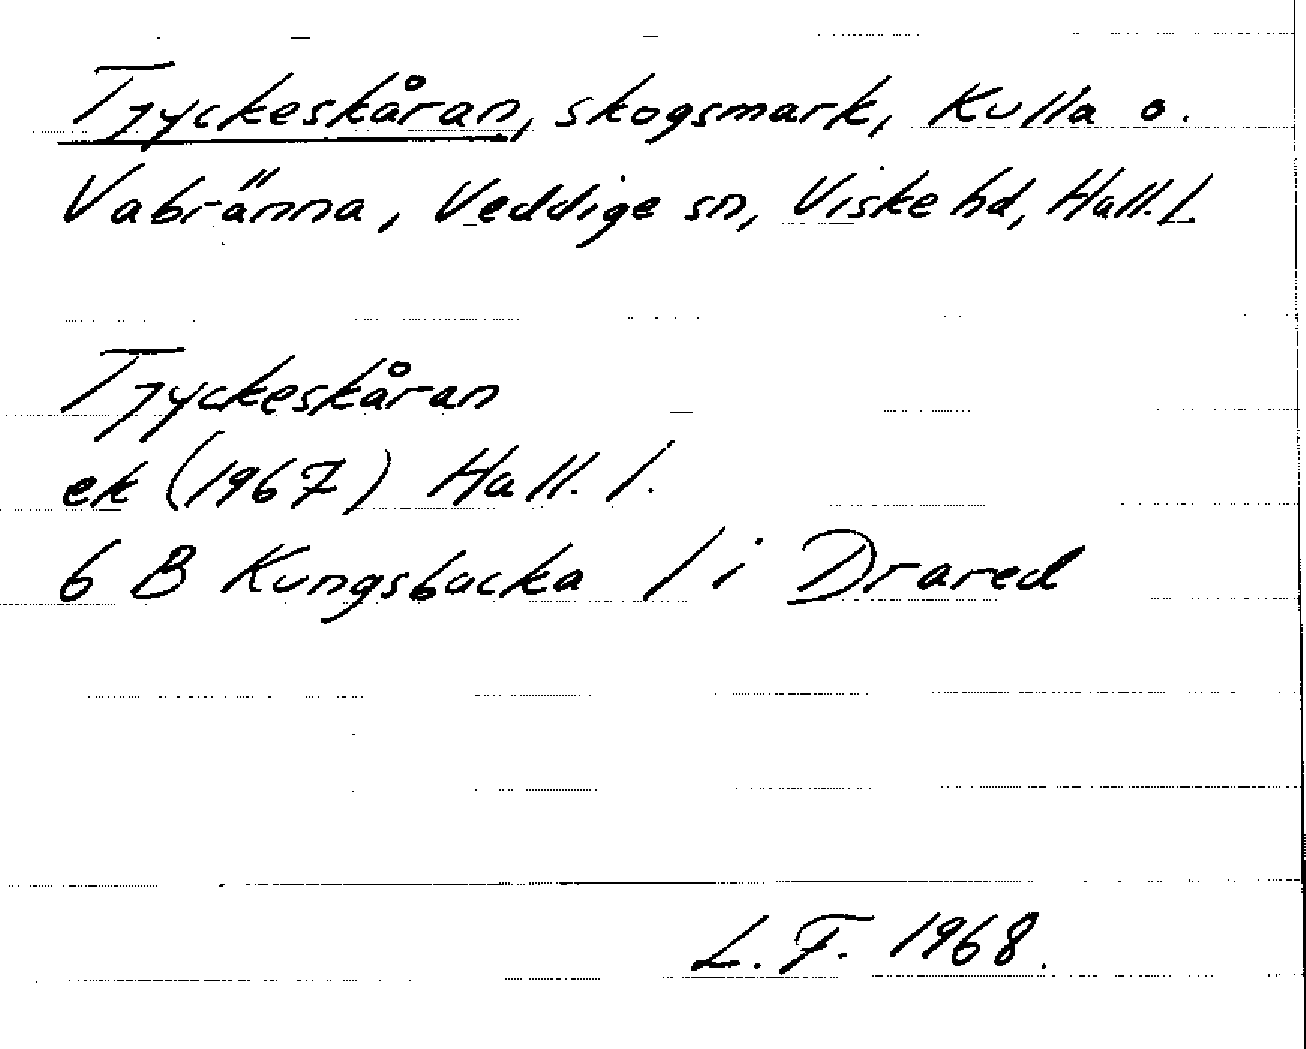 Tjyckeskåran, skogsmark, Kulla o.
Vabränna, Veddige sn, Viske hd, Hall. l.
Tjyckeskåran
ek (1967) Hall. l.
6 B Kungsbacka / i Drared
L. F. 1968.